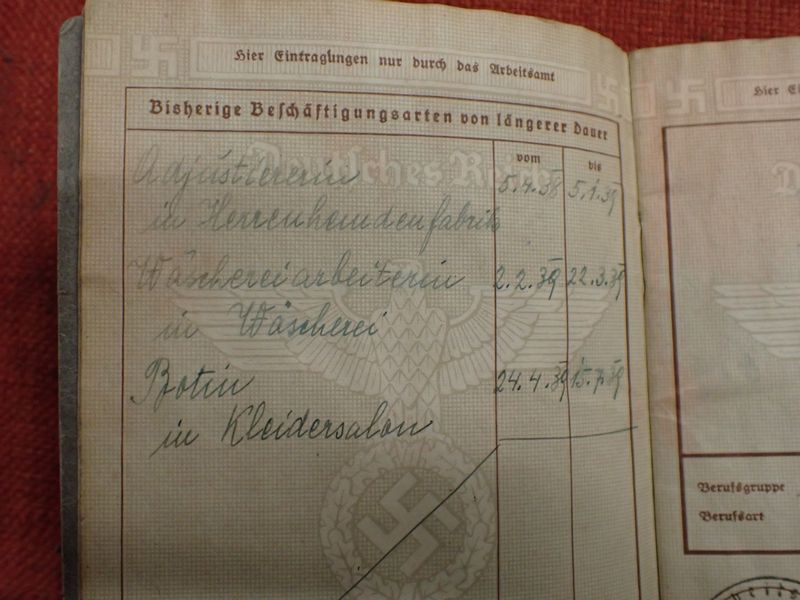 Hier Eintragungen nur durch das Arbeitsamt
Bisherige Beschäftigungsarten von längerer Dauer
vom bis
Deutsches Reich
Adjustiererin 5.4.38 5.1.39
in Herrenhemdenfabrik
Wäschereiarbeiterin 2.2.39 22.3.39
in Wäscherei
Botin 24.4.39 15.7.39
in Kleidersalon
Hier Ei
Berufsgruppe
Berufsart